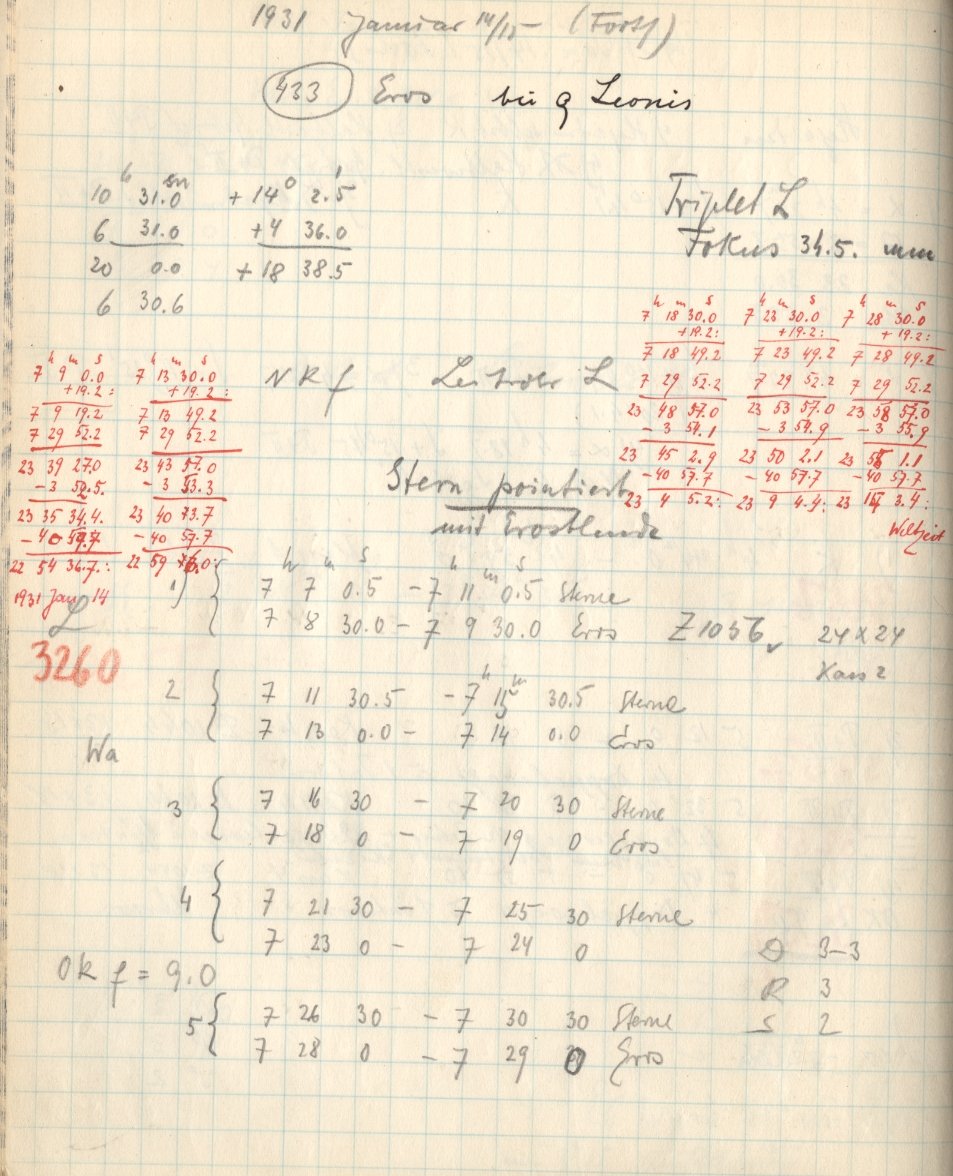 1931 Januar 14/15 (Forts)
433 Eros bei ϱ Leonis
10 h 31.0 m + 14° 2.5'
6 31.0 +4 36.0
20 0.0 +18 38.5
6 30.6
Triplet L
Fokus 34.5. mm
7 h 18 m 30.0 s 7 h 23 m 30.0 s 7 h 28 m 30.0 s
+19.2: +19.2: +19.2:
7 18 49.2 7 23 49.2 7 28 49.2
7 29 52.2 7 29 52.2 7 29 52.2
23 48 57.0 23 53 57.0 23 58 57.0
-3 54.1 -3 54.9 -3 55.9
23 45 2.9 23 50 2.1 23 55 1.1
-40 57.7 -40 57.7 -40 57.7
23 4 5.2: 23 9 4.4: 23 14 3.4:
Weltzeit
7 h 9 m 0.0 s 7 h 13 m 30.0 s
+19.2: +19.2:
7 9 19.2 7 13 49.2
7 29 52.2 7 29 52.2
23 39 27.0 23 43 57.0
-3 52.5. -3 53.3
23 35 34.4. 23 40 73.7
-40 57.7 -40 57.7
22 54 36.7.: 22 59 6.0:
1931 Jan 14
L
3260
NRf Leitrohr L
Stern pointiert
mit Erosblende
1) 7 h 7 m 0.5 s - 7 h 11 m 0.5 s Sterne
7 8 30.0 - 7 9 30.0 Eros Z1056, 24x24
2 7 11 30.5 - 7 h 15 m 30.5 Sterne
7 13 0.0 - 7 14 0.0 Eros
Wa
3 7 16 30 - 7 20 30 Sterne
7 18 0 - 7 19 0 Eros
4 7 21 30 - 7 25 30 Sterne
7 23 0 - 7 24 0
D 3-3
R 3
S 2
OKf = 9.0
5 7 26 30 - 7 30 30 Sterne
7 28 0 - 7 29 0 Eros